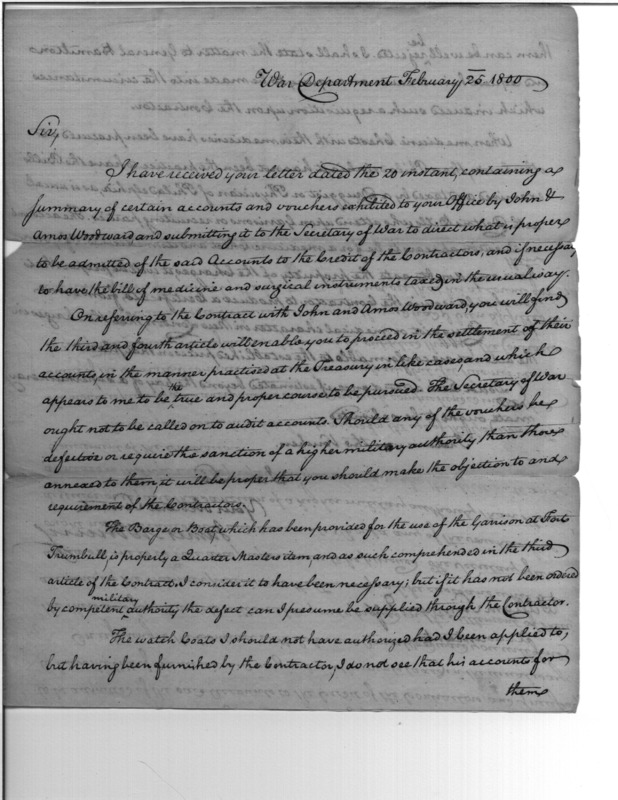 War Department February 25 1800
Sir,
I have received your letter dated the 20 instant, containing a
summary of certain accounts and vouchers exhibited to your Office by John &
Amos Woodward and submitting it to the Secretary of War to direct what is proper
to be admitted of the said Accounts to the Credit of the Contractors, and if necessary
to have the bill of medicine and surgical instruments taxed in the usual way.
On referring to the Contract with John and Amos Woodward, you will find
the third and fourth article will enable you to proceed in the settlement of their
accounts, in the manner practised at the Treasury in like cases, and which
appears to me to be the true and proper course to be pursued. The Secretary of War
ought not to be called on to audit accounts. Should any of the vouchers be
defective or require the sanction of a higher military authority than those
annexed to them, it will be proper that you should make the objection to and
requirement of the Contractors.
The Barge or Boat which has been provided for the use of the Garrison at Fort
Trumbull, is properly a Quarter Masters item, and as such comprehended in the third
article of the Contract. I consider it to have been necessary; but if it has not been ordered
by competent military authority the defect can I presume be supplied through the Contractor.
The watch Coats I should not have authorized had I been applied to,
but having been furnished by the Contractor, I do not see that his accounts for
them